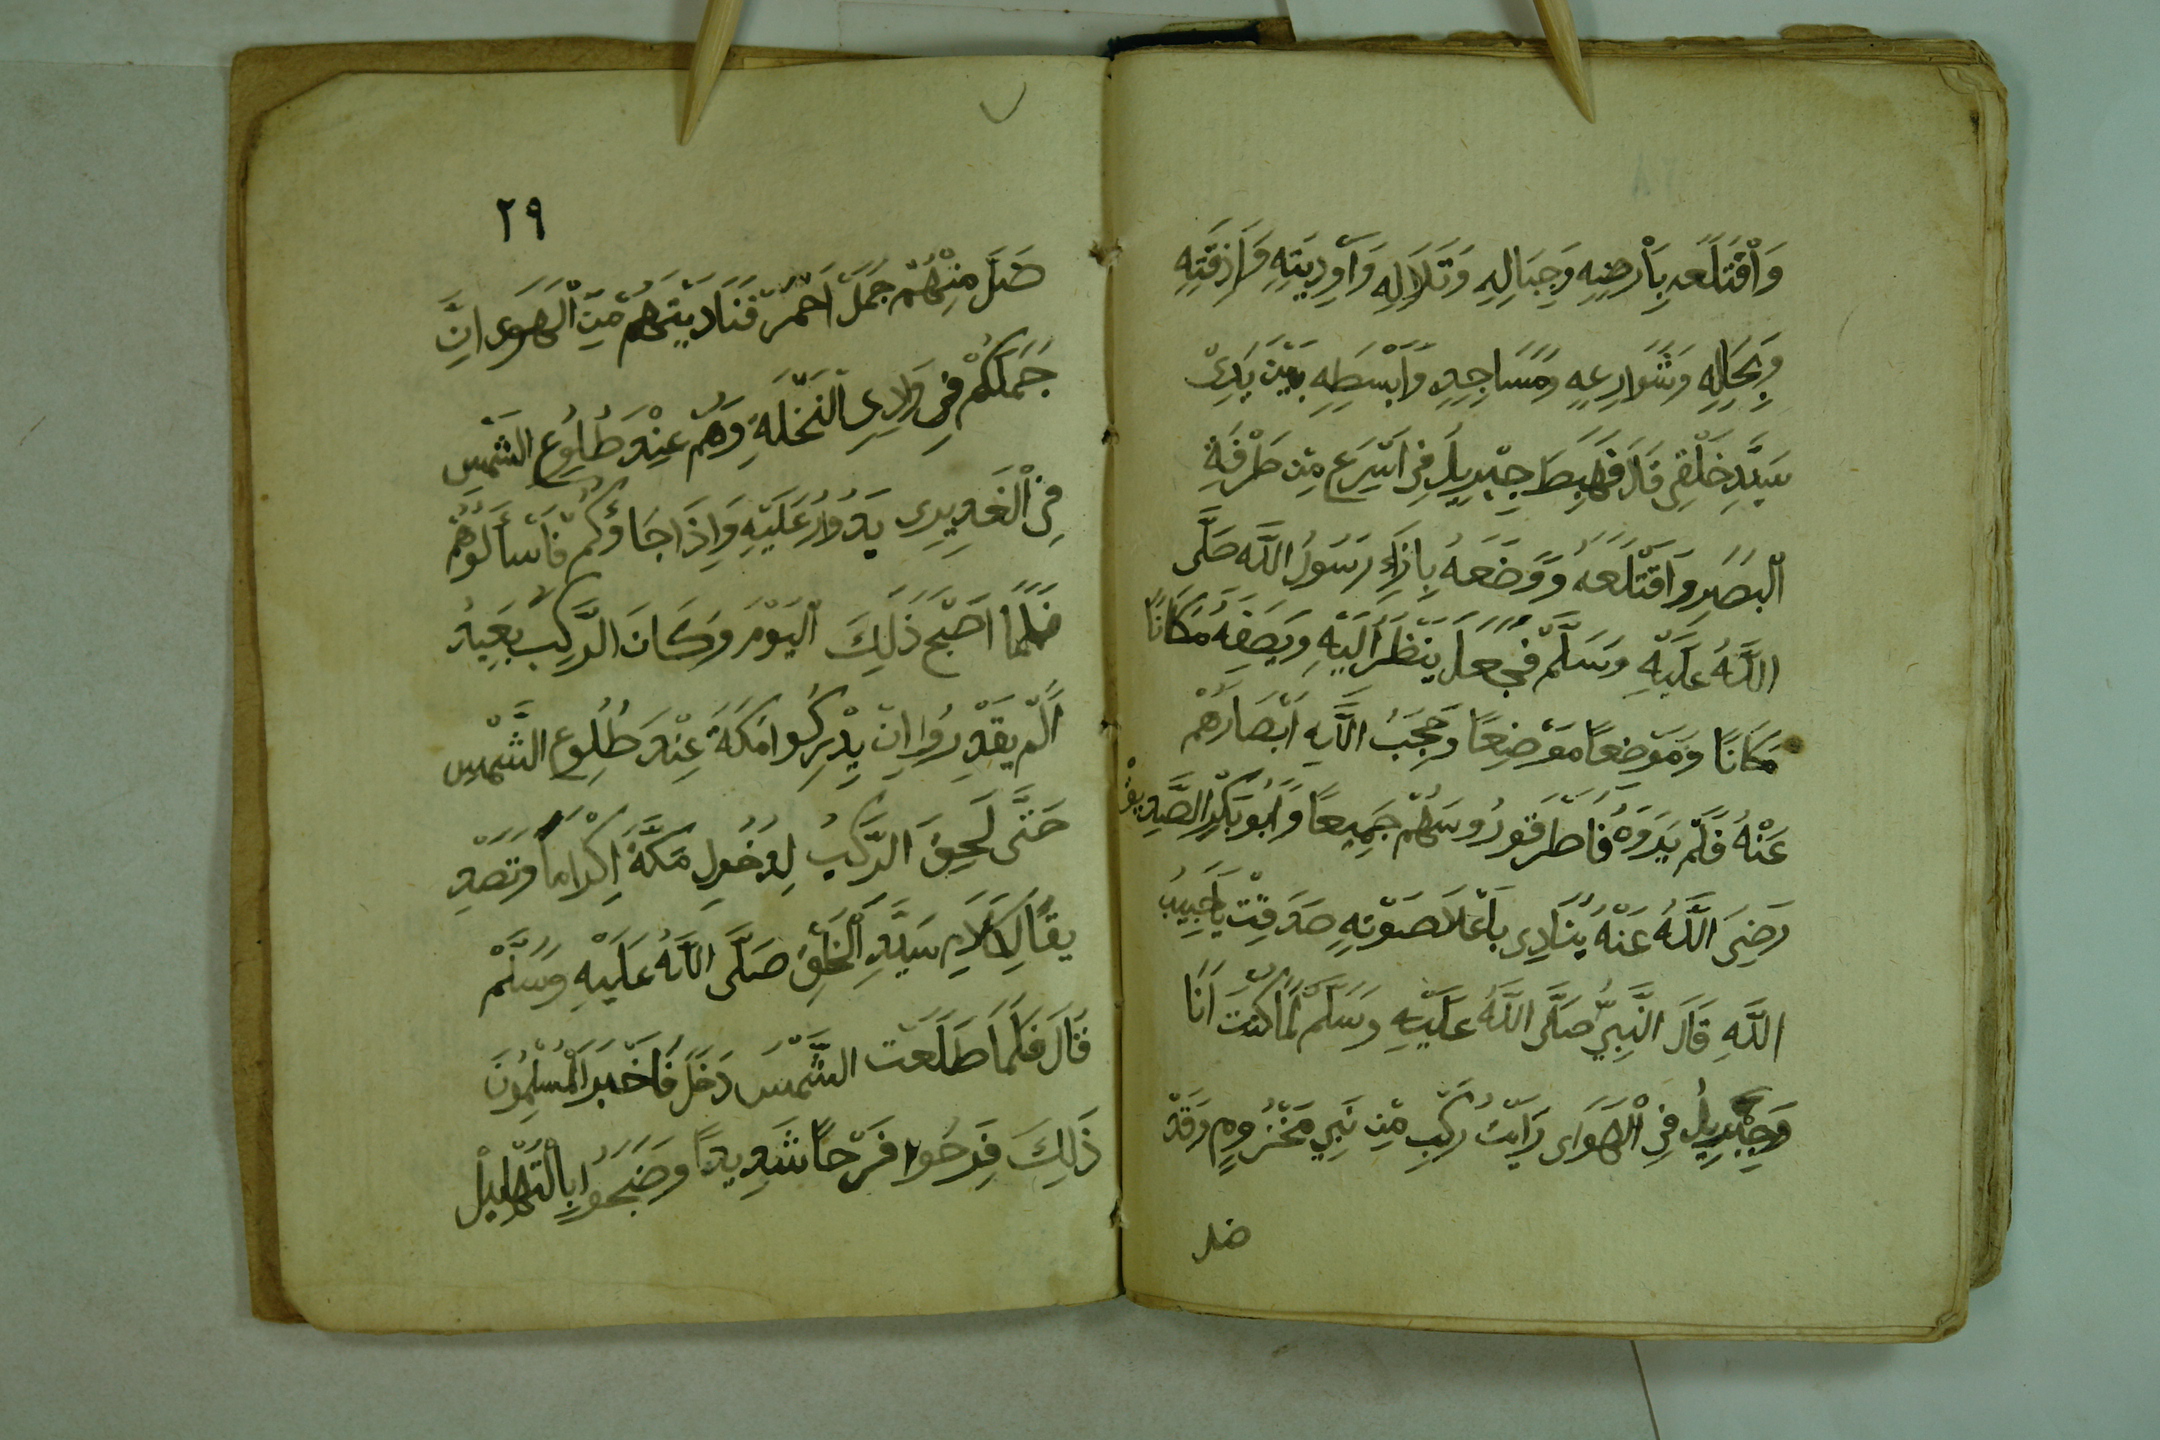 وَاقْتَلَعَه بِأَرضِهِ وَجِبَالِهِ وَتَلَالِه وَأَوِدِيَتِهِ وَأَزِقَّتِهِ
وَبِحَالِهِ وَشَوَارِعِهِ وَمَسَاجِدِهِ وَابْسَطِهِ بَيْنَ يَدَىْ
سَيَّدِ خَلْقِى قَالَ فَهَبَطَ جِبْرِيلَ فِى اَسْرَع مِنْ طَرْفَةِ
الْبصَرِ وَاقْتَلَعَهُ وَوَضَعَهُ بِازَاءِ رَسَولُ اللَّه صَلَّى
اللَّهُ عَلَيْهِ وَسَلَّمَ فَجَعَلَ يَنْظَرُ اِلَيْهِ وَيَصِفَهُ مَكَانًا
مَكَانًا وَمَوْضِعاً مَوْضِعًا وَحُجِبَ اللَّه اَبْصَارَهُمْ
عَنْهُ فَلَمْ يَرَوَهُ فَاطرَقُو رُوسَهُمْ جَمِيعًا وَاَبُو بَكْرِ الصَّدِيقْ
رَضِىَ اللَّهُ عَنْهُ يُنَادِى بِأَعْلَا صَوْتِهِ صَدَقْتَ يَاحَبِيبُ
اللَّهِ قَالَ النَّبِيُّ صَلَّى اللَّهُ عَلَيْهِ وَسَلَّمَ لَمَّا كُنْتَ اَنَا
وَجِبْرِيلُ فِى الْهَوَاى رَاَيْتُ رَكْبِ مِنْ بَنِي مَخْزُومٍ وَقَدْ
ضل
٢٩
ضَلَّ مِنْهُمْ جَمَلَ اَحْمَرْ فَنَادَيْتَهُمْ مِنَ الْهَوَى اِنَّ
جَمَلَكُمْ فِى وَادِىِ النَّخْلَةِ وَهُمْ عِنْدَ طُلُوعِ الشَّمْسِ
فِى الْغَدِيرِى يَدُورُ عَلَيْهِ وَاِذَا جَاؤُكُمْ فَاسْأَلُوهُمْ
فَلَمَّا اَصْبَحَ ذَلِكَ الْيَوْمَ وَكَانَ الرَّكِبُ بَعِيدُ
اَلَّمْ يِقْدِرُوا اِنْ يِدْرِكُوا مَكَةَ عِنْدَ طُلُوعِ الشَّمْسِ
حَتَّى لَحِقَ الرَّكِبُ لِدُخُولِ مَكَّةَ اِكْرَاماً وَتَصْدِ
يقاً لِكَلَامِ سَيَّدِ الْخَلْقِ صَلَّى اللَّهُ عَلَيْهِ وَسَلَّمْ
قَالَ فَلَمَّا طَلَعَتْ الشَّمْسَ دَخَلَ فَاخْبَرَ الْمُسْلِمُونَ
ذَلِكَ فَرَحُوا فَرْحاً شَدِيداً وَضَجَوُا بِالتَّهْلِيلْ